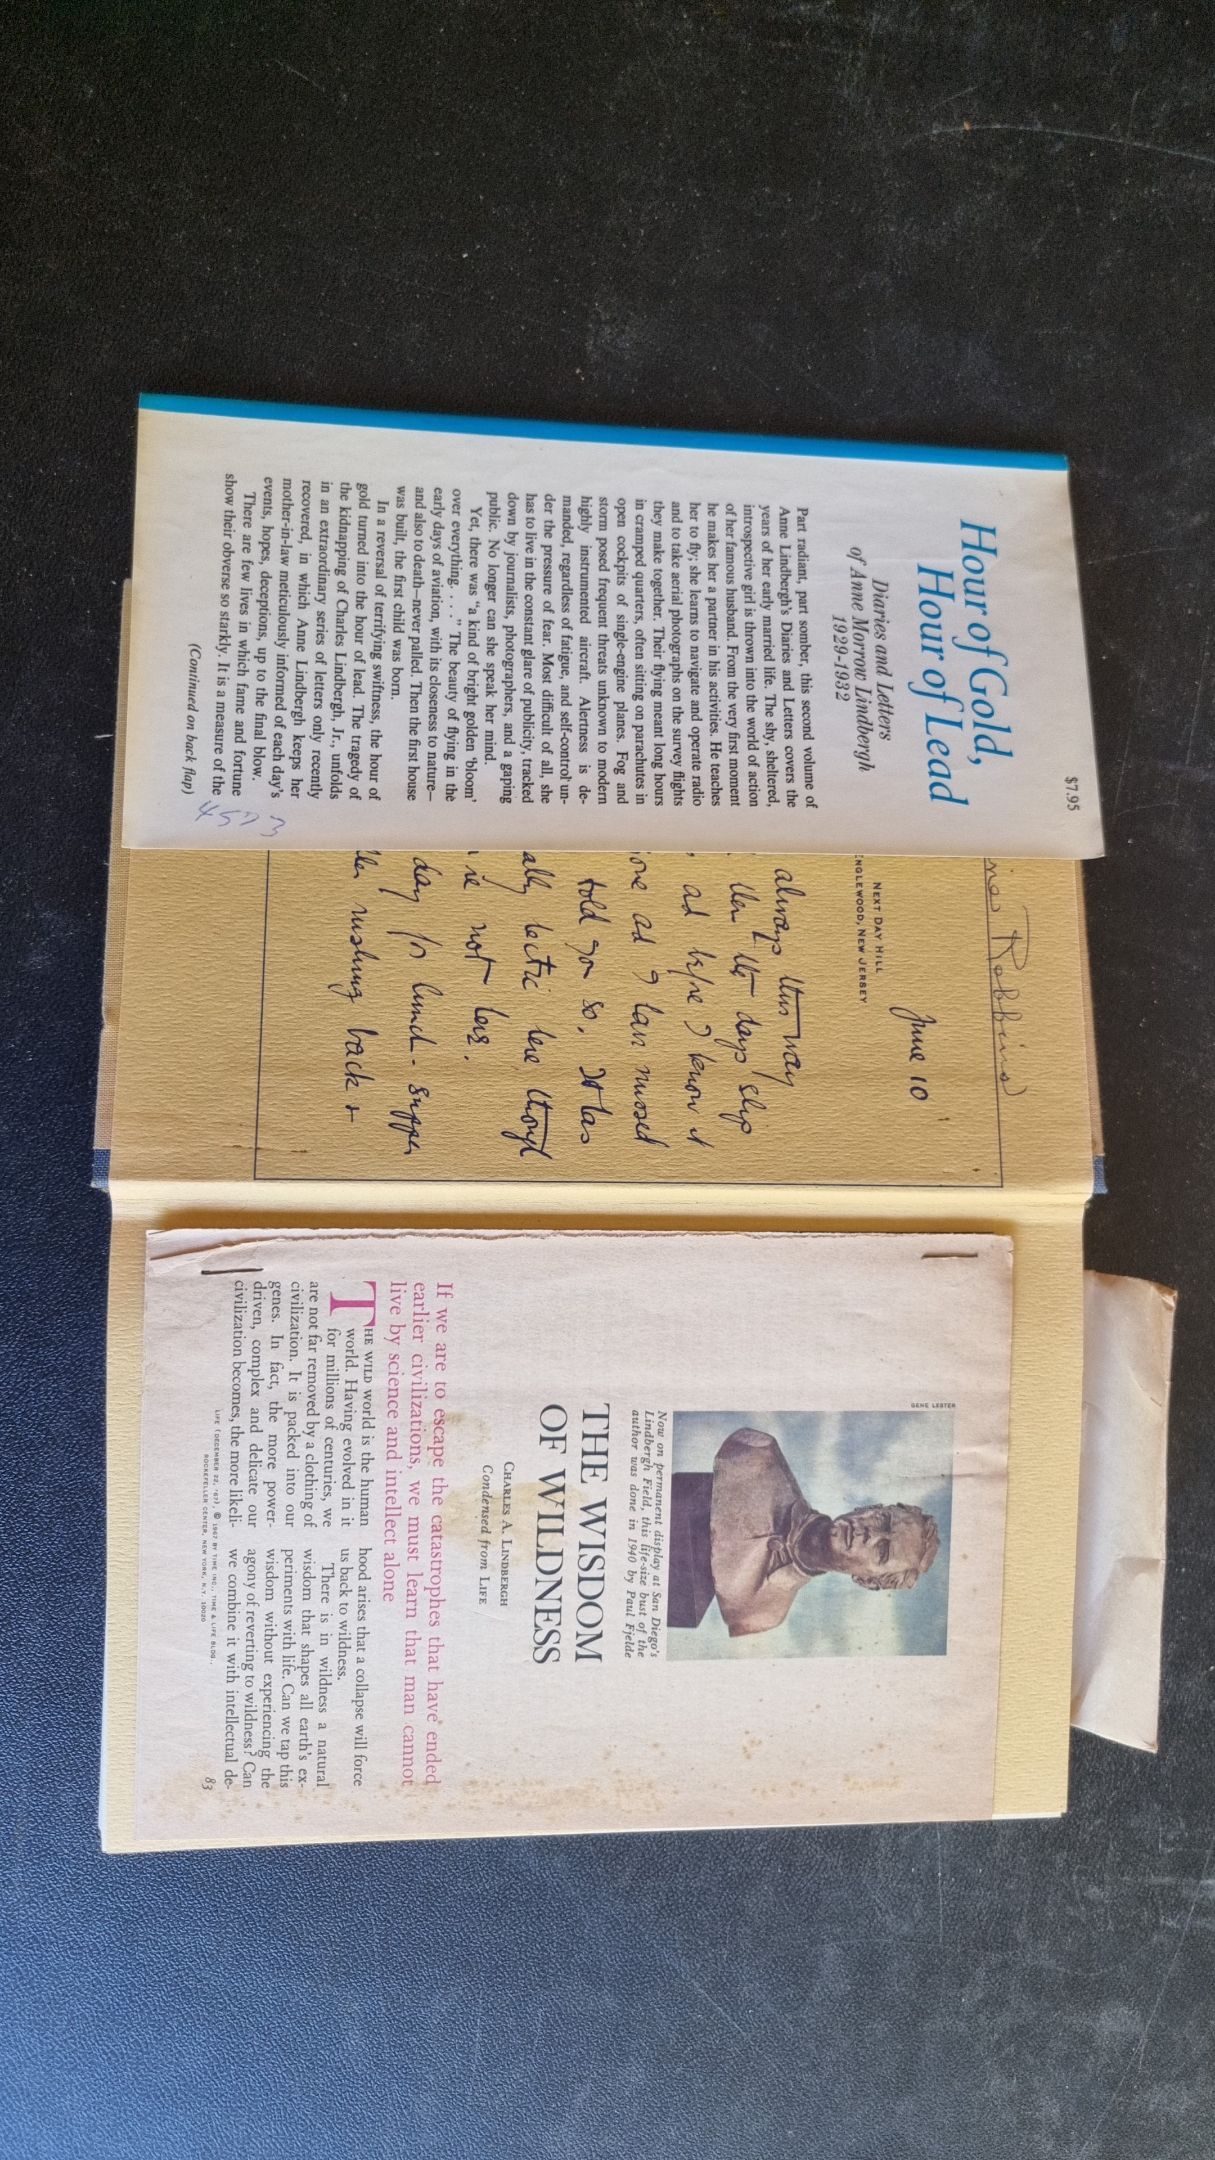 $7.95
Hour of Gold,
Hour of Lead
Diaries and Letters
of Anne Morrow Lindbergh
1929-1932
Part radiant, part somber, this second volume of
Anne Lindbergh's Diaries and Letters covers the
years of her early married life. The shy, sheltered,
introspective girl is thrown into the world of action
of her famous husband. From the very first moment
he makes her a partner in his activities. He teaches
her to fly; she learns to navigate and operate radio
and to take aerial photographs on the survey flights
they make together. Their flying meant long hours
in cramped quarters, often sitting on parachutes in
open cockpits of single-engine planes. Fog and
storm posed frequent threats unknown to modern
highly instrumented aircraft. Alertness is de-
manded, regardless of fatigue, and self-control un-
der the pressure of fear. Most difficult of all, she
has to live in the constant glare of publicity, tracked
down by journalists, photographers, and a gaping
public. No longer can she speak her mind.
Yet, there was "a kind of bright golden 'bloom'
over everything. . . ." The beauty of flying in the
early days of aviation, with its closeness to nature—
and also to death—never palled. Then the first house
was built, the first child was born.
In a reversal of terrifying swiftness, the hour of
gold turned into the hour of lead. The tragedy of
the kidnapping of Charles Lindbergh, Jr., unfolds
in an extraordinary series of letters only recently
recovered, in which Anne Lindbergh keeps her
mother-in-law meticulously informed of each day's
events, hopes, deceptions, up to the final blow.
There are few lives in which fame and fortune
show their obverse so starkly. It is a measure of the
(Continued on back flap)
4573
Robbins
June 10
NEXT DAY HILL
ENGLEWOOD, NEW JERSEY
always this way
let the days slip
as before I know it
one as I have missed
told you so. It has
ally hectic here though
re not here.
day for lunch - supper
rushing back +
GENE LESTER
Now on permanent display at San Diego's
Lindbergh Field, this life-size bust of the
author was done in 1940 by Paul Fjelde
THE WISDOM
OF WILDNESS
CHARLES A. LINDBERGH
Condensed from LIFE
If we are to escape the catastrophes that have ended
earlier civilizations, we must learn that man cannot
live by science and intellect alone
THE WILD world is the human
world. Having evolved in it
for millions of centuries, we
are not far removed by a clothing of
civilization. It is packed into our
genes. In fact, the more power-
driven, complex and delicate our
civilization becomes, the more likeli-
hood arises that a collapse will force
us back to wildness.
There is in wildness a natural
wisdom that shapes all earth's ex-
periments with life. Can we tap this
wisdom without experiencing the
agony of reverting to wildness? Can
we combine it with intellectual de-
LIFE (DECEMBER 22, '67), © 1967 BY TIME INC., TIME & LIFE BLDG.,
ROCKEFELLER CENTER, NEW YORK, N.Y. 10020
83